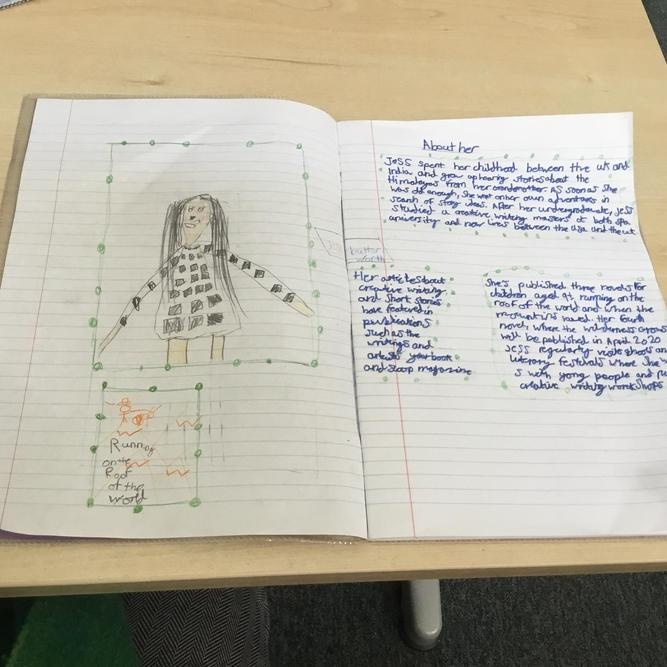 Running
on the
Roof
of the
World
About her
Jess spent her childhood between the uk and
India and grew up hearing stories about the
Himalayas from her grandmother. As soon as she
was old enough, she went on her own adventures in
search of story ideas. After her undergraduate, Jess
studied a creative writing masters at bath spa
university and now lives between the Usa and the uk
butter
worth
Her articles about
creative writing
and short stories
have featured in
publications
such as the
writings and
artists year book
and scoop magazine
She's published three novels for
children aged 9+, running on the
roof of the world and when the
mountains roared. Her fourth
novel, where the wilderness grows
will be published in April 2020
Jess regularly visits schools and
literary festivals where she
s with young people and
creative writing workshops